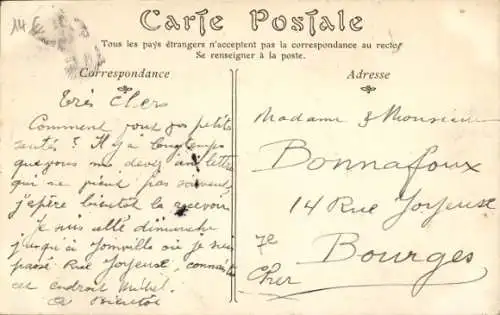 14 €
Carte Postale
Tous les pays étrangers n'acceptent pas la correspondance au recto
Se renseigner à la poste.
Correspondance
Très Chers
Comment vont vos petits
santés ? Il y a longtemps
que vous me devez une lettre
qui se vient pas souvent,
j'espère bientôt la recevoir
Je suis allé dimanche
jusqu'à Joinville où je suis
passé Rue Joyeuse, connais
cet endroit
A bientôt
Adresse
Madame & Monsieur
Bonnafoux
14 Rue Joyeuse
Bourges
Cher